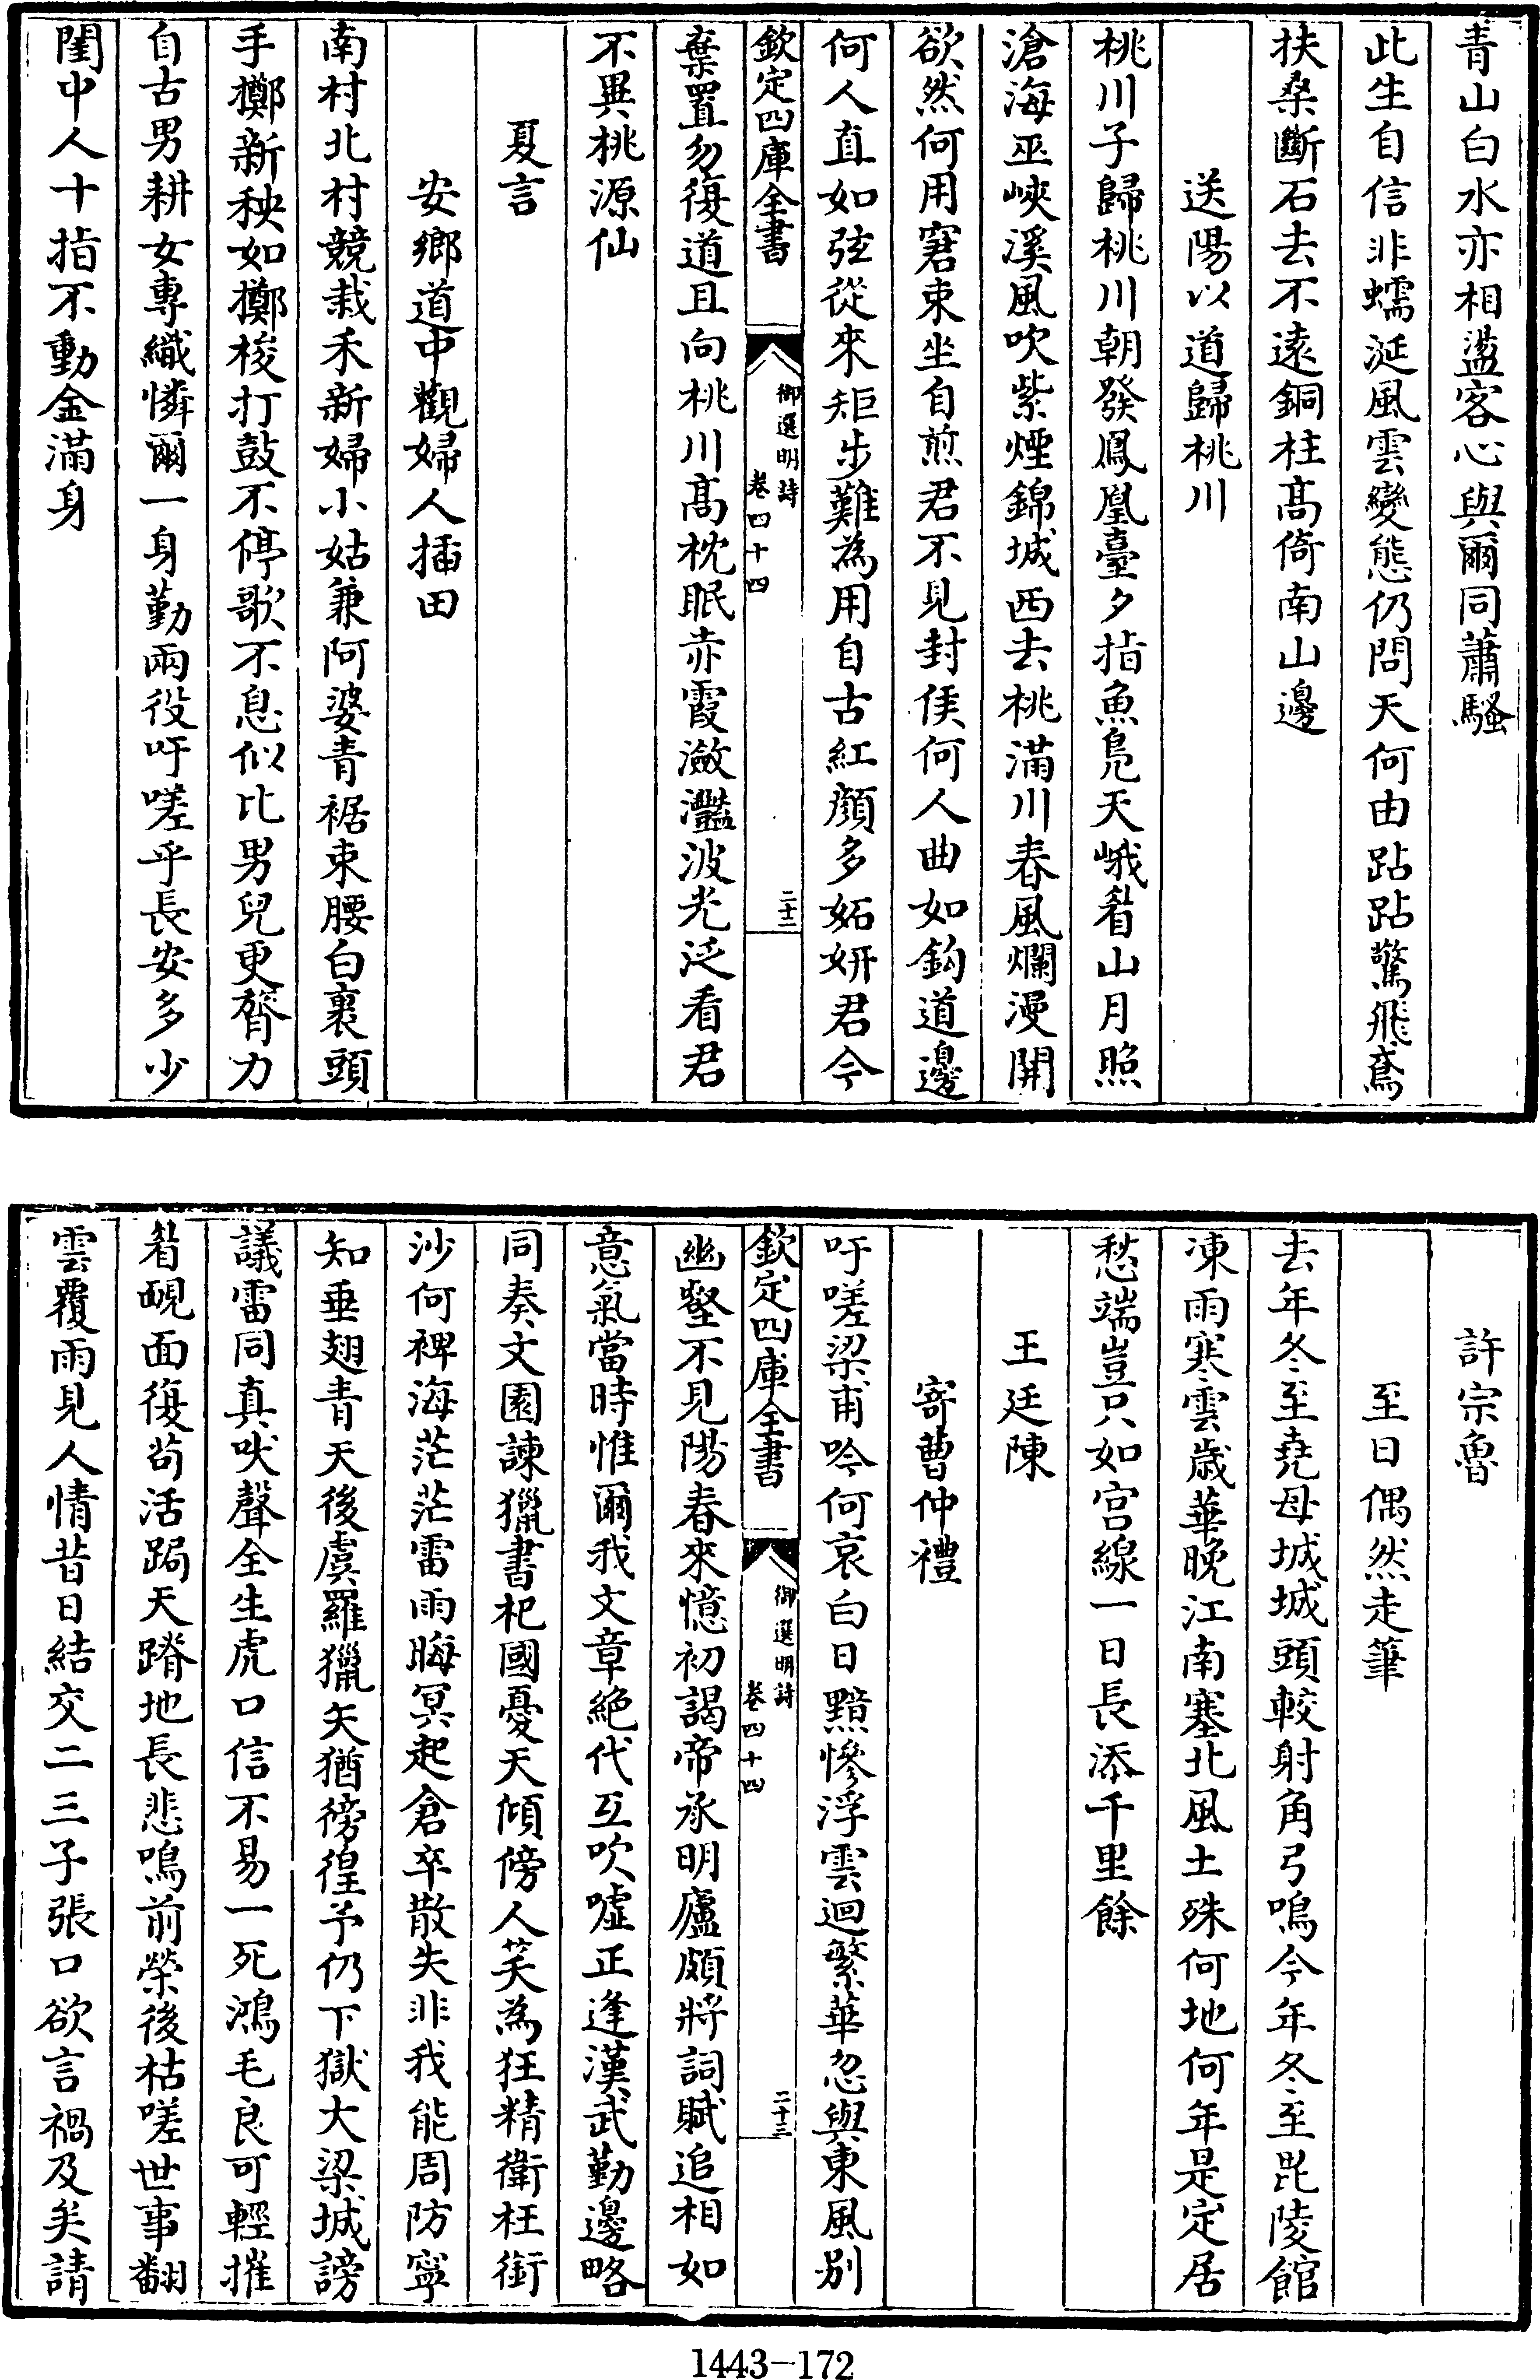 青山白水亦相盪客心與爾同蕭騷
此生自信非蠕涎風雲變態仍問天何由跕跕驚飛鳶
扶桑斷石去不遠銅柱髙倚南山邊
送陽以道歸桃川
桃川子歸桃川朝發鳳凰臺夕指魚鳧天峨眉山月照
滄海巫峽溪風吹紫煙錦城西去桃滿川春風爛漫開
欲然何用窘束坐自煎君不見封侯何人曲如鈎道邊
何人直如弦從來矩步難為用自古紅顔多妬妍君今
欽定四庫全書
御選明詩
卷四十四
二十二
棄置勿復道且向桃川髙枕眠赤霞瀲灩波光泛看君
不異桃源仙
夏言
安鄉道中觀婦人插田
南村北村競栽禾新婦小姑兼阿婆青裾束腰白裹頭
手擲新秧如擲梭打鼓不停歌不息似比男兒更膂力
自古男耕女專織憐爾一身勤兩役吁嗟乎長安多少
閨中人十指不動金滿身
許宗魯
至日偶然走筆
去年冬至堯母城城頭較射角弓鳴今年冬至毘陵館
凍雨寒雲歳華晚江南塞北風土殊何地何年是定居
愁端豈只如宫線一日長添千里餘
王廷陳
寄曹仲禮
吁嗟梁甫吟何哀白日黯慘浮雲迴繁華忽與東風别
欽定四庫全書
御選明詩
卷四十四
二十三
幽壑不見陽春來憶初謁帝承明廬頗將詞賦追相如
意氣當時惟爾我文章絶代互吹噓正逢漢武勤邊略
同奏文園諫獵書杞國憂天傾傍人笑為狂精衛枉銜
沙何裨海茫茫雷雨晦冥起倉卒散失非我能周防寧
知垂翅青天後虞羅獵矢猶徬徨予仍下獄大梁城謗
議雷同真吠聲全生虎口信不易一死鴻毛良可輕摧
眉靦面復茍活跼天蹐地長悲鳴前榮後枯嗟世事翻
雲覆雨見人情昔日結交二三子張口欲言禍及矣請
1443-172